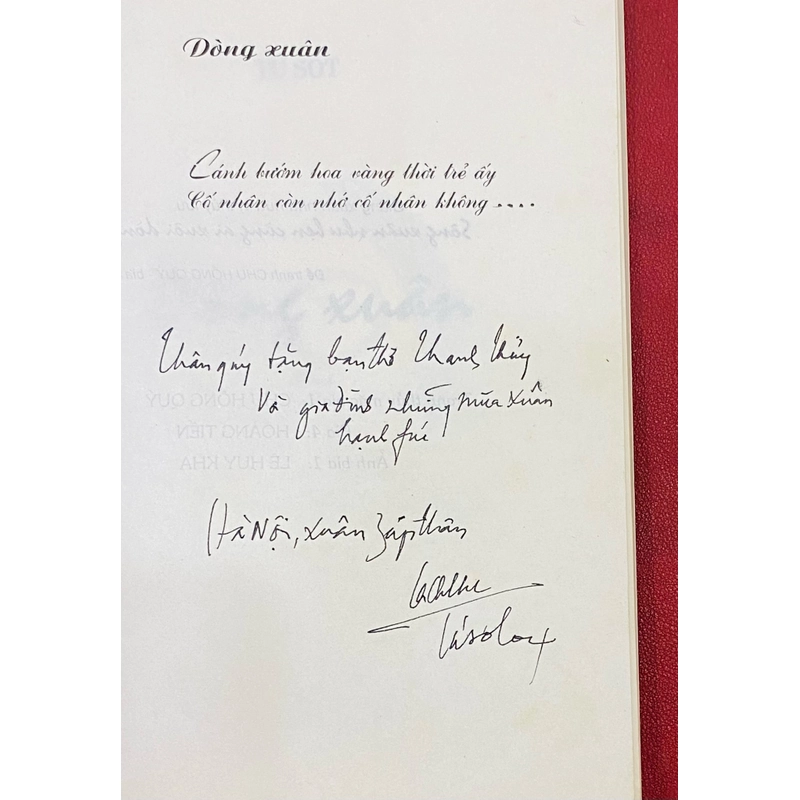 Dòng xuân
Cánh bướm hoa vàng thời trẻ ấy
Cố nhân còn nhớ cố nhân không....
Thân quý tặng bạn thơ Thanh Thủy
Và gia đình những mùa xuân
hạnh fúc
Hà Nội, xuân Záp thân